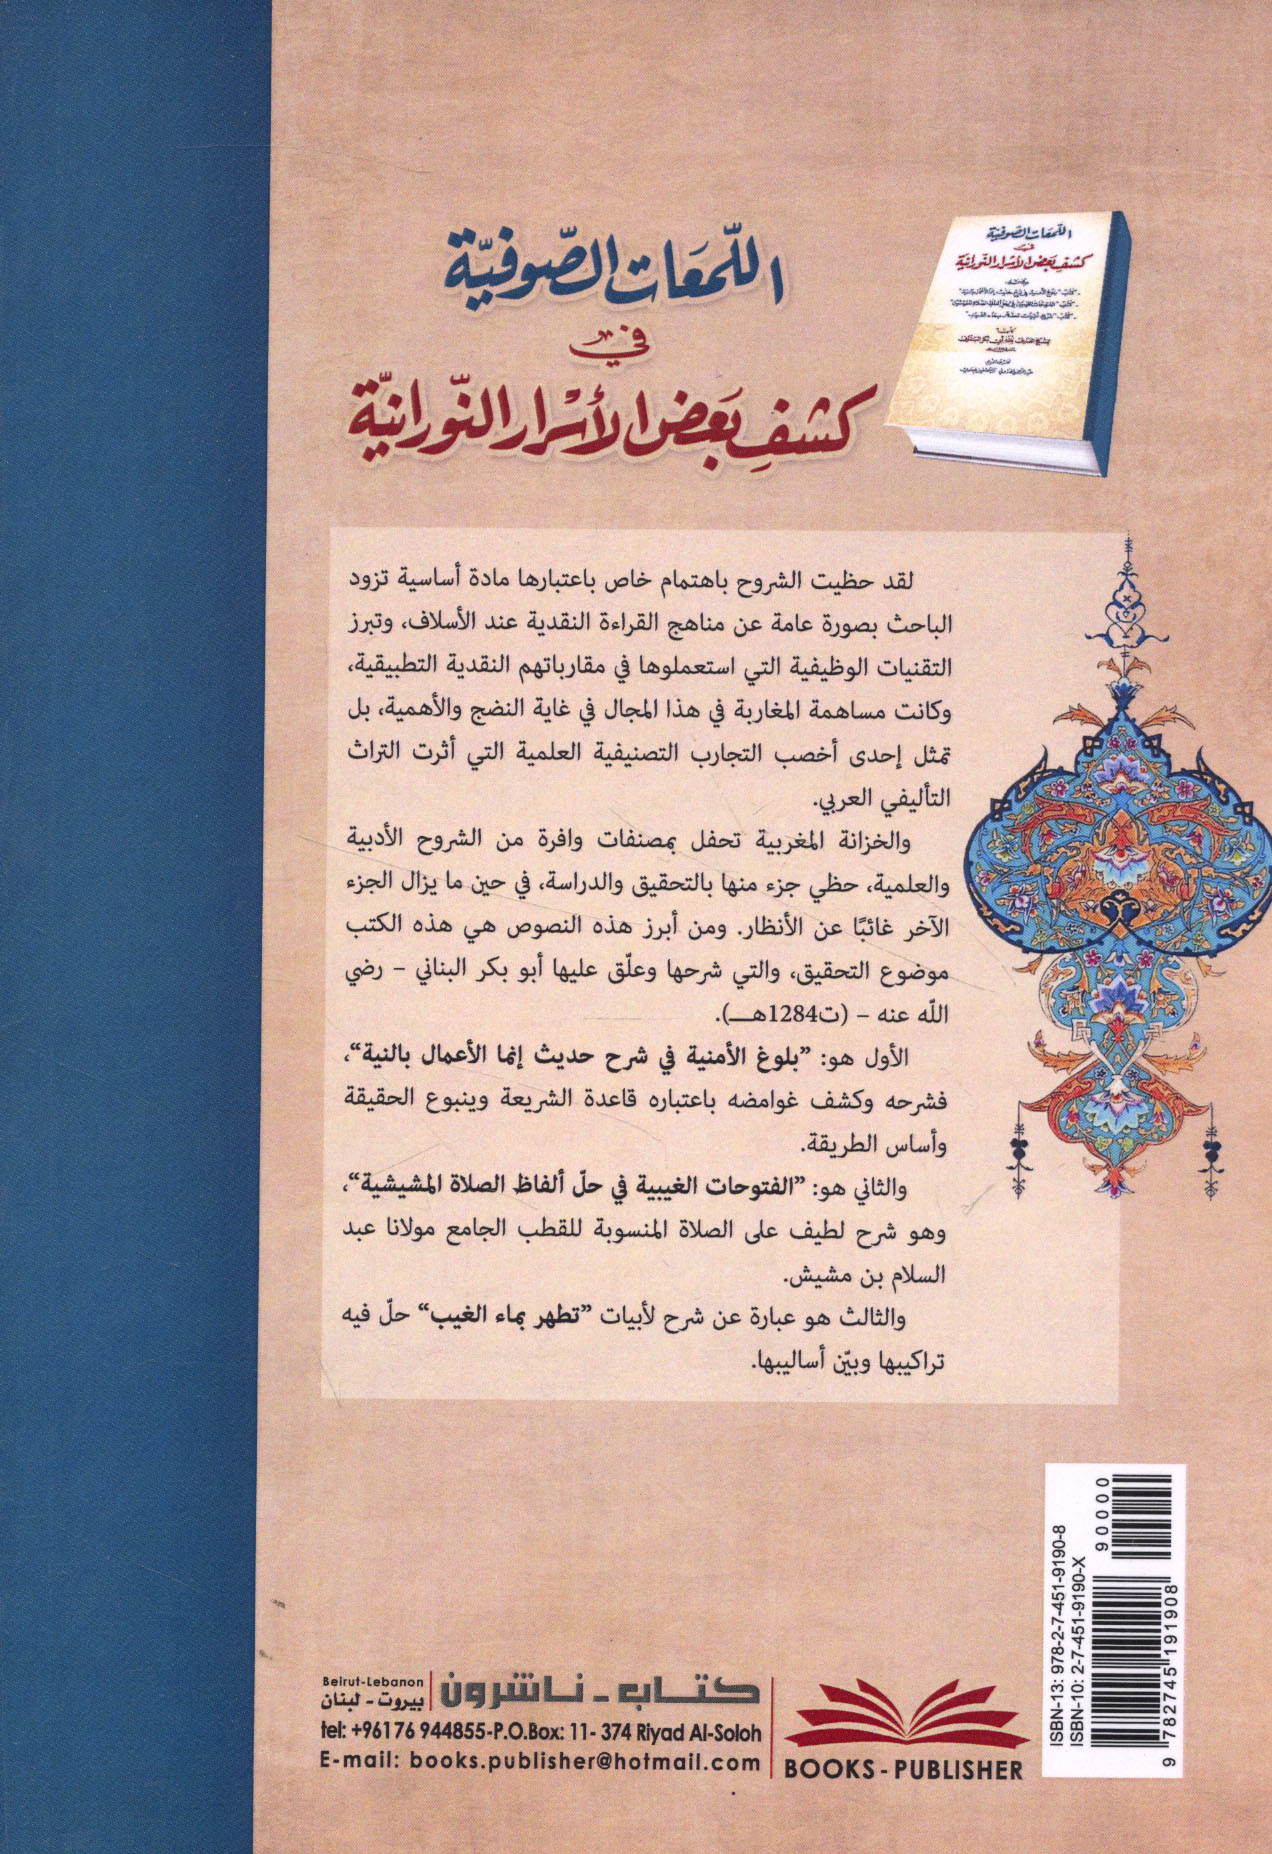 اللّمعَات الصّوفيّة
في
كشفِ بَعض الأسْرار النّورانيّة
اللّمعَات الصّوفيّة
في
كشفِ بَعض الأسْرار النّورانيّة
لقد حظيت الشروح باهتمام خاص باعتبارها مادة أساسية تزود
الباحث بصورة عامة عن مناهج القراءة النقدية عند الأسلاف، وتبرز
التقنيات الوظيفية التي استعملوها في مقارباتهم النقدية التطبيقية،
وكانت مساهمة المغاربة في هذا المجال في غاية النضج والأهمية، بل
تمثل إحدى أخصب التجارب التصنيفية العلمية التي أثرت التراث
التأليفي العربي.
والخزانة المغربية تحفل بمصنفات وافرة من الشروح الأدبية
والعلمية، حظي جزء منها بالتحقيق والدراسة، في حين ما يزال الجزء
الآخر غائبًا عن الأنظار. ومن أبرز هذه النصوص هي هذه الكتب
موضوع التحقيق، والتي شرحها وعلّق عليها أبو بكر البناني - رضي
اللّه عنه - (ت1284هـ).
الأول هو: "بلوغ الأمنية في شرح حديث إنما الأعمال بالنية"،
فشرحه وكشف غوامضه باعتباره قاعدة الشريعة وينبوع الحقيقة
وأساس الطريقة.
والثاني هو: "الفتوحات الغيبية في حلّ ألفاظ الصلاة المشيشية"،
وهو شرح لطيف على الصلاة المنسوبة للقطب الجامع مولانا عبد
السلام بن مشيش.
والثالث هو عبارة عن شرح لأبيات "تطهر بماء الغيب" حلّ فيه
تراكيبها وبيّن أساليبها.
ISBN-13: 978-2-7-451-9190-8
ISBN-10: 2-7-451-9190-X
90000
9 782745 191908
كتاب - ناشرون
Beirut-Lebanon
بيروت - لبنان
tel: +96176 944855-P.O.Box: 11- 374 Riyad Al-Soloh
E-mail: books.publisher@hotmail.com
BOOKS - PUBLISHER